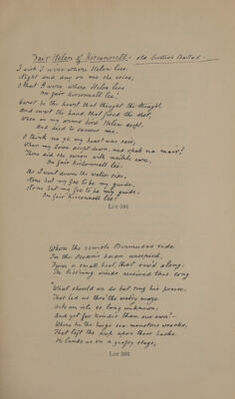 Fair Helen of Kirconnell. Old Scottish Ballad.
I wish I were where Helen lies
Night and day on me she cries,
O that I were where Helen lies
On fair Kirconnell lee!
Curst be the heart that thought the thought
And curst the hand that fired the shot,
When in my arms Helen dropt,
And died to succour me.
O think na ye my heart was sair,
When my Love dropt down, and spak nae mair!
There did she swoon with meikle care,
On fair Kirconnell lee.
As I went down the water side,
None but my foe to be my guide,
None but my foe to be my guide,
On fair Kirconnell lee!
Lot
Where the remote Bermudas ride
In the Ocean's bosom unespied,
From a small boat, that row'd along,
The listening winds received this song
"What should we do but sing his praise
That led us thro' the watry maze
Unto an isle so long unknown,
And yet far kinder than our own?
Where he the huge sea monsters wracks,
That lift the deep upon their backs.
He lands us on a grassy stage,
Lot